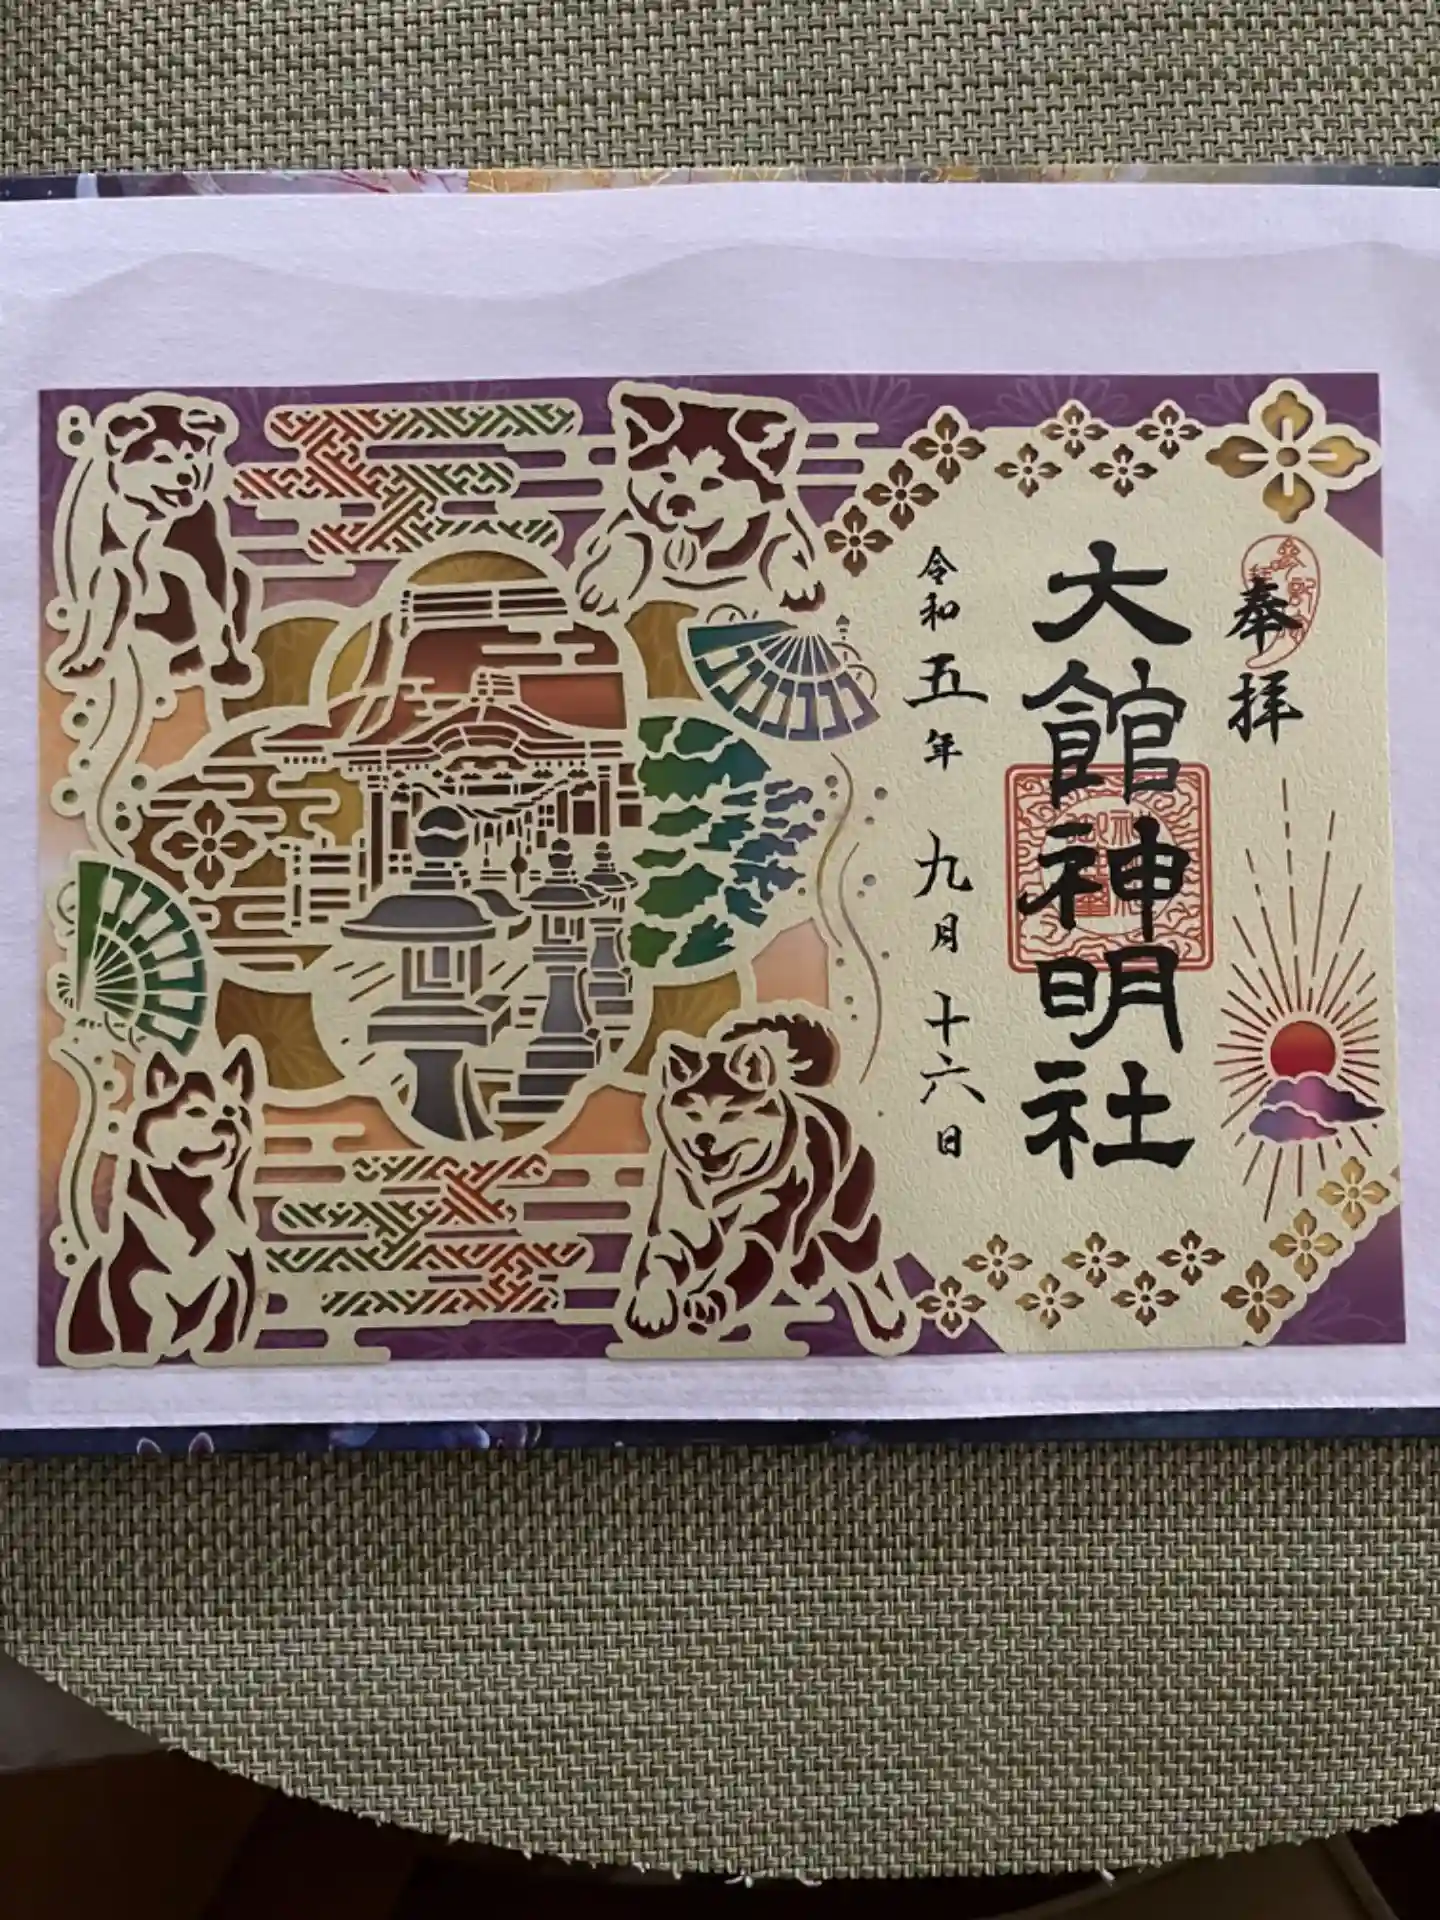 奉拝
大館神明社
令和五年 九月 十六日